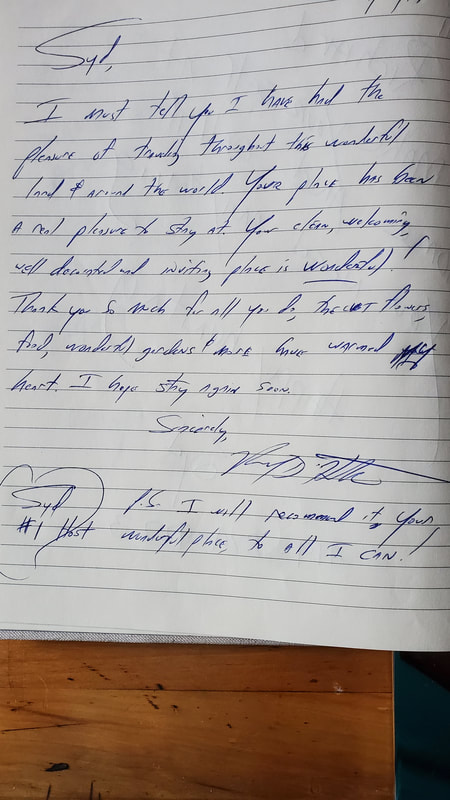 Syd,
I must tell you I have had the
pleasure of traveling throughout this wonderful
land & around the world. Your place has been
a real pleasure to stay at. Your clean, welcoming,
well decorated and inviting place is wonderful!
Thank you so much for all you do, the cut flowers,
food, wonderful gardens & more have warmed my
heart. I hope stay again soon.
Sincerely,
P.S. I will recommend it, your
wonderful place, to all I can!
Syd
#1 Host